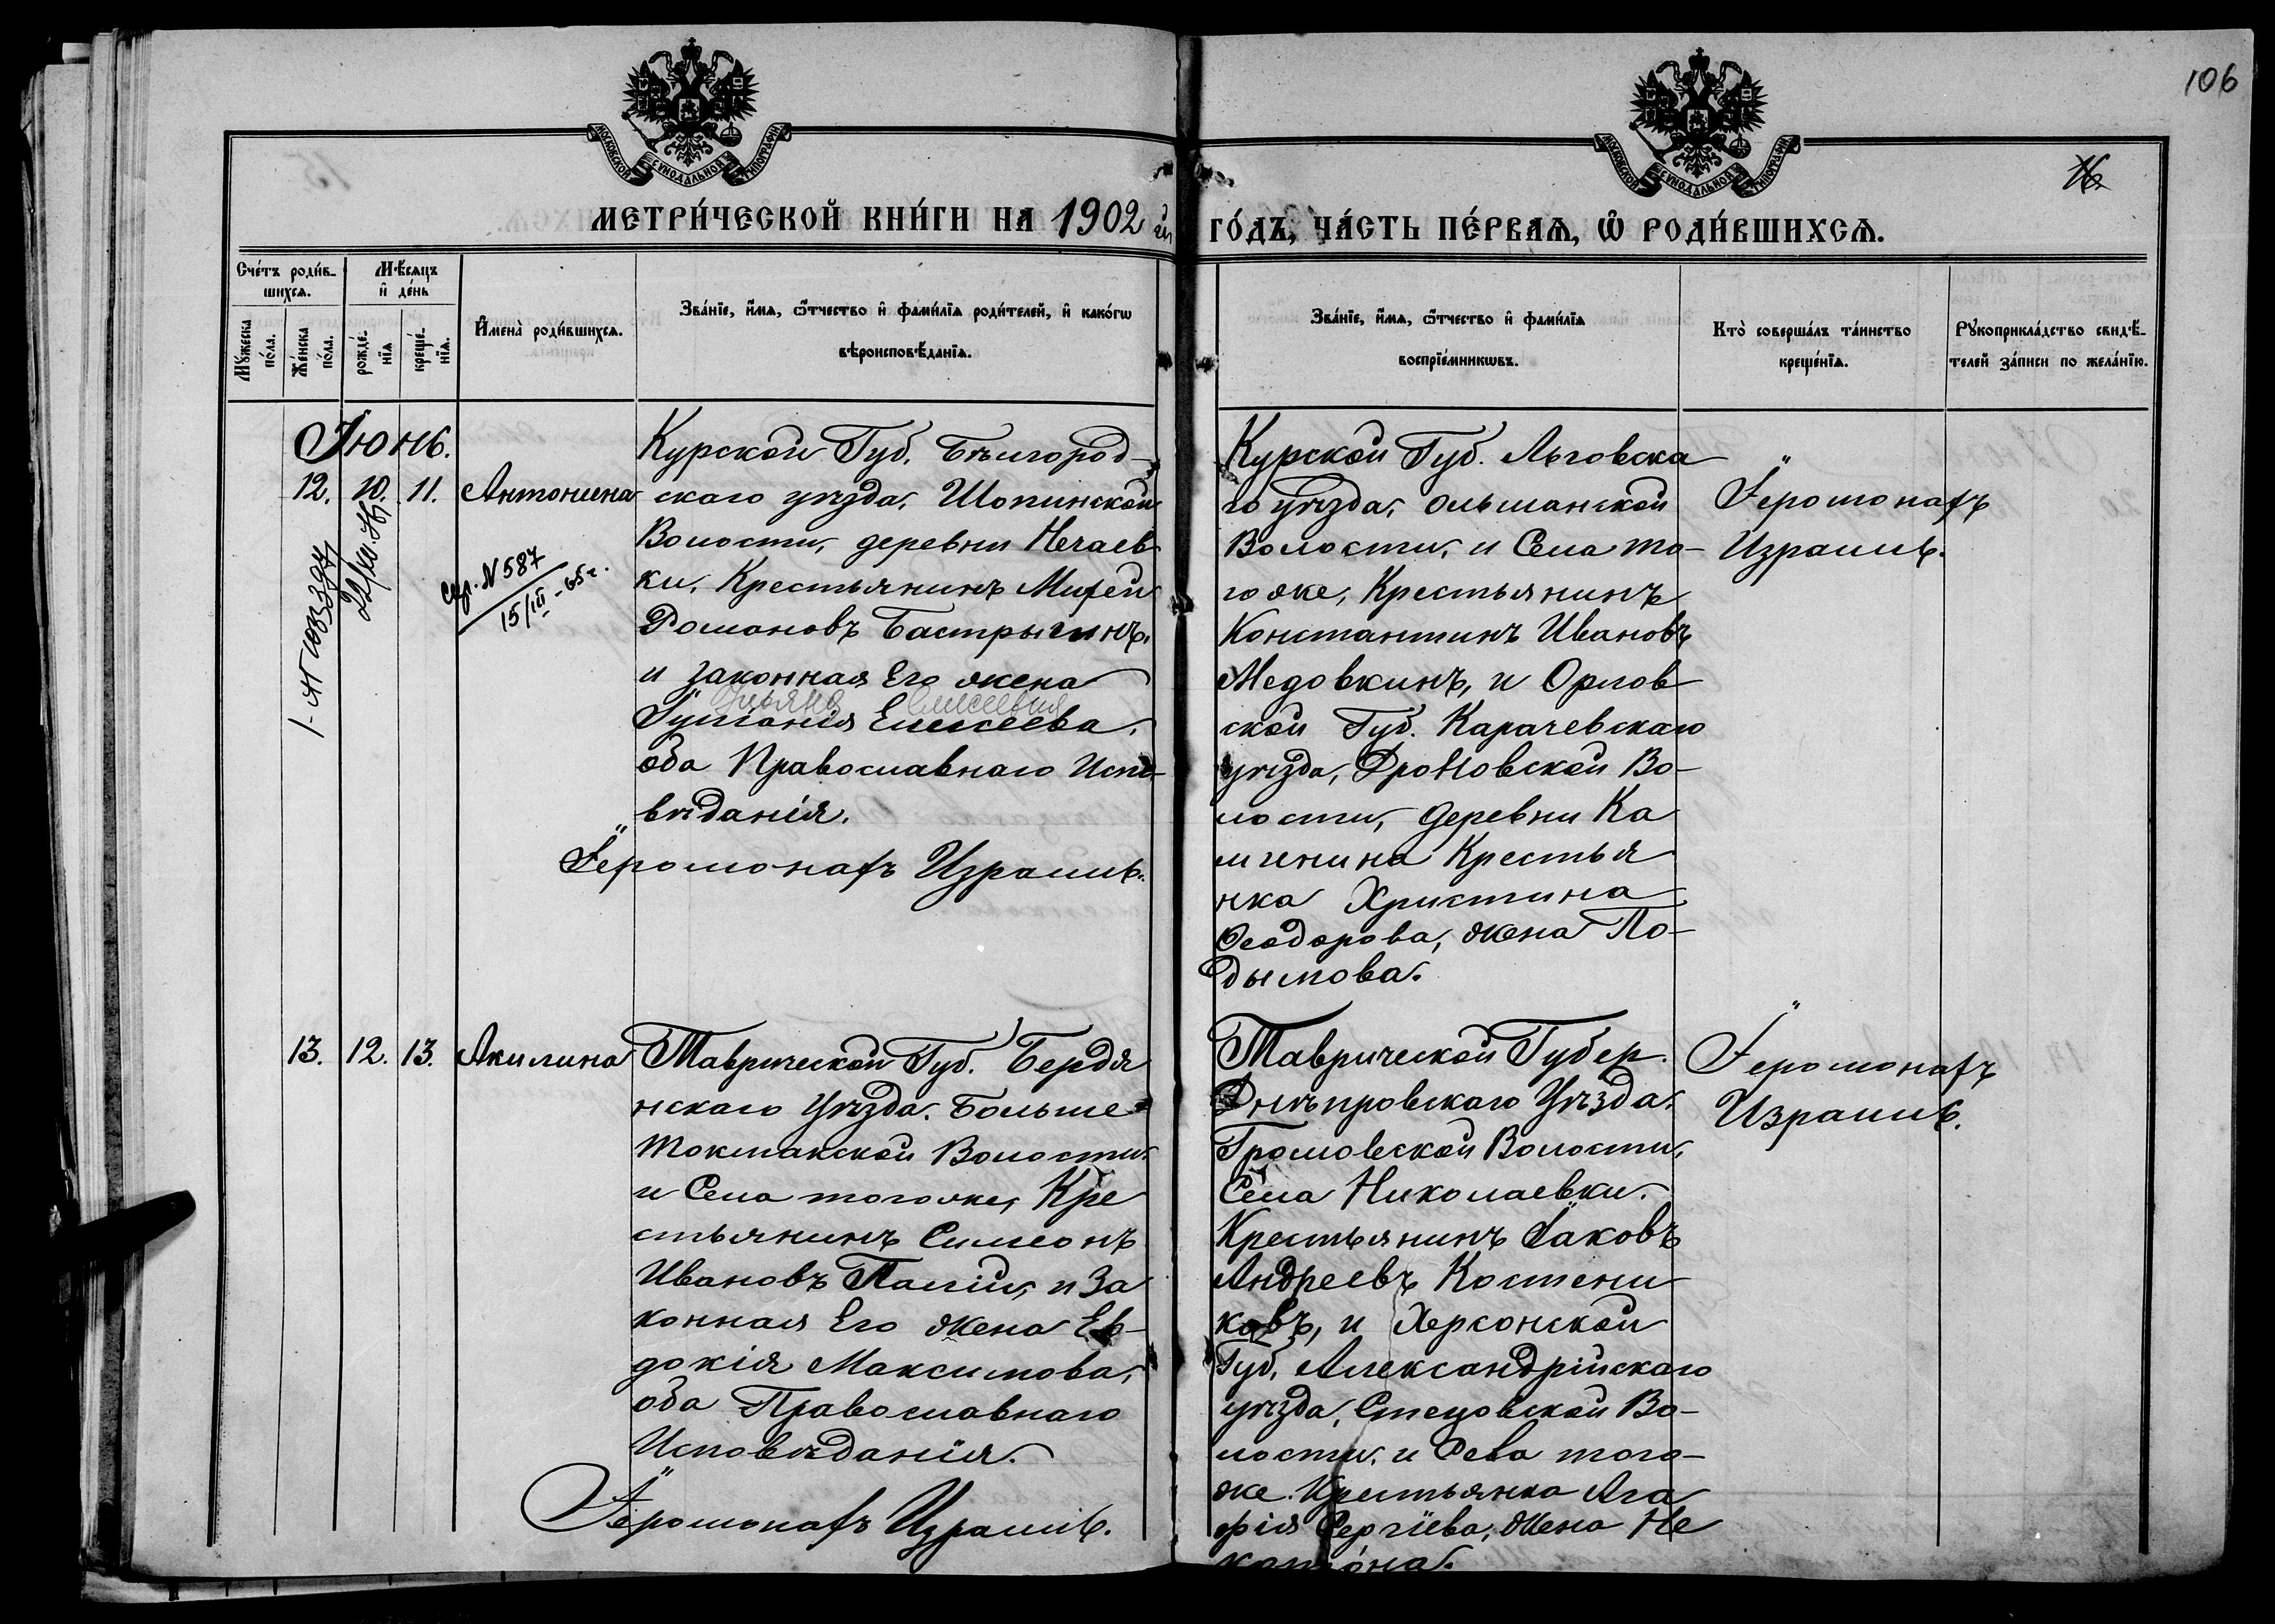 106
16
МОСКОВСКОЙ СѴНОДАЛЬНОЙ ТИПОГРАФІИ
МОСКОВСКОЙ СѴНОДАЛЬНОЙ ТИПОГРАФІИ
МЕТРИ́ЧЕСКОЙ КНИ́ГИ НА 1902 й ГО́ДЪ, ЧА́СТЬ ПЕ́РВАѦ, Ѡ҆ РОДИ́ВШИХСѦ.
Сче́тъ роди́в-
шихсѧ.
Мꙋ́жеска
по́ла.
Же́нска
по́ла.
Мѣ́сяцъ
и҆ де́нь
рожде́-
нїѧ
креще́-
нїѧ.
И҆мена̀ роди́вшихсѧ.
Зва́нїе, и҆́мѧ, ѻ҆́тчество и҆ фами́лїѧ роди́телей, и҆ како́гѡ
вѣроисповѣ́данїѧ.
Зва́нїе, и҆́мѧ, ѻ҆́тчество и҆ фами́лїѧ
воспрїе́мникѡвъ.
Кто̀ соверша́лъ та́инство
креще́нїѧ.
Рꙋкоприкла́дство свидѣ́-
телей за́писи по жела́нїю.
Іюнь.
12. 10. 11. Антонина
спр. N 587
15/III - 65г.
Курской Губ. Бѣлгород-
скаго уѣзда, Шопинской
Волости, деревни Нечаев
ки, Крестьянинъ Михей
Романовъ Бастрыгинъ,
и законная Его жена
Ульяна Елисеевна
Іуліанія Елисеева,
оба Православнаго Испо-
вѣданія.
Іеромонахъ Израиль.
Курской Губ. Льговска
го уѣзда, Ольшанской
Волости, и Села то-
гоже, Крестьянинъ
Константинъ Ивановъ
Медовкинъ, и Орлов
ской Губ. Карачевскаго
уѣзда, Дроновской Во-
лости, деревни Ка
мчнина Крестья
нка Христина
Ѳеодорова, жена По-
дымова.
Іеромонахъ
Израиль.
13. 12. 13. Акилина
Таврической Губ. Бердя
нскаго Уѣзда. Больше
Токмакской Волости
и Села тогоже, Кре
стьянинъ Симеонъ
Ивановъ Палій, и За
конная Его жена Ев-
докія Максимова,
оба Православнаго
Исповѣданія.
Іеромонахъ Израиль.
Таврической Губер.
Днѣпровскаго Уѣзда.
Громовской Волости,
Села Николаевки.
Крестьянинъ Іаковъ
Андреевъ Костени
ковъ, и Херсонской
Губ. Александрійскаго
уѣзда, Стецовской Во-
лости, и Села того-
же. Крестьянка Ага
фія Сергіева, жена Не
Іеромонахъ
Израиль.